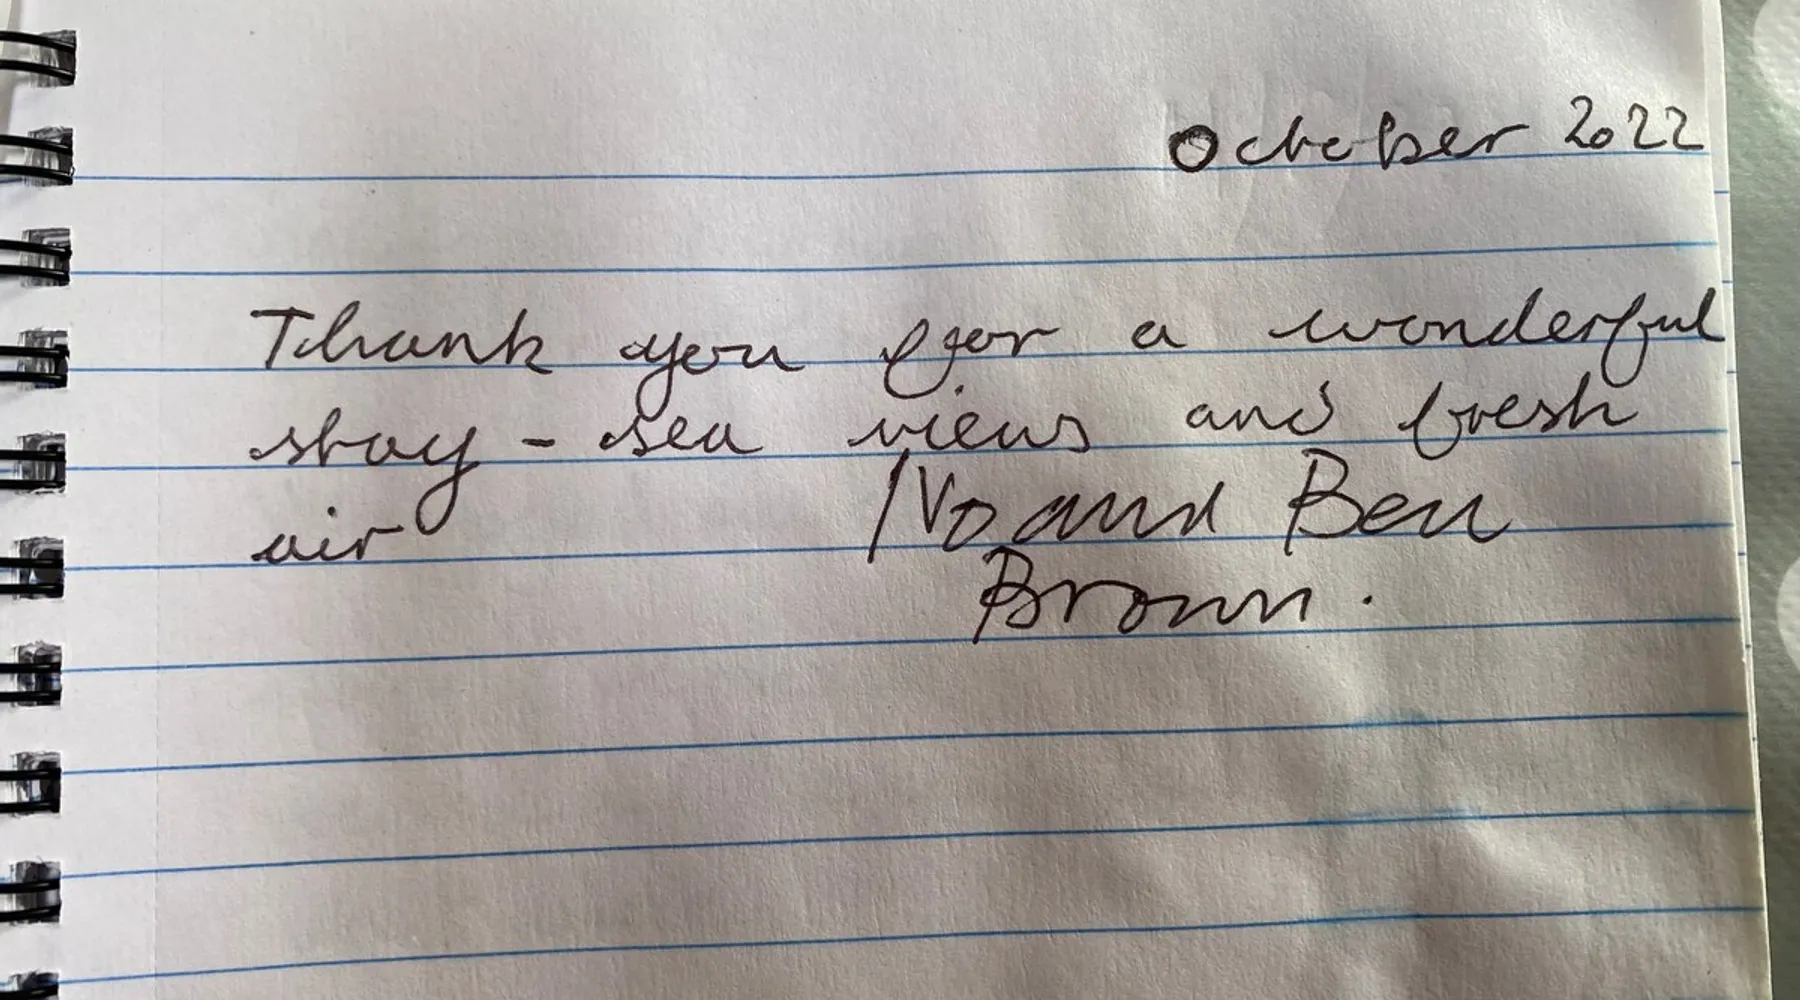 October 2022
Thank you for a wonderful
stay - sea views and fresh
air
Ivo and Ben
Brown.